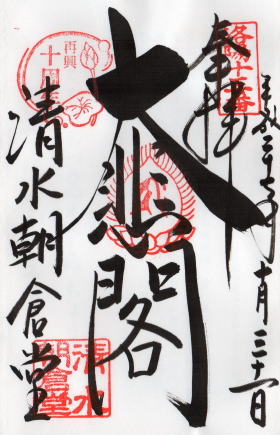 洛陽十三番
奉拝
平成二十七年十月三十一日
大悲閣
再興
十周年
清水朝倉堂
清水
朝倉堂